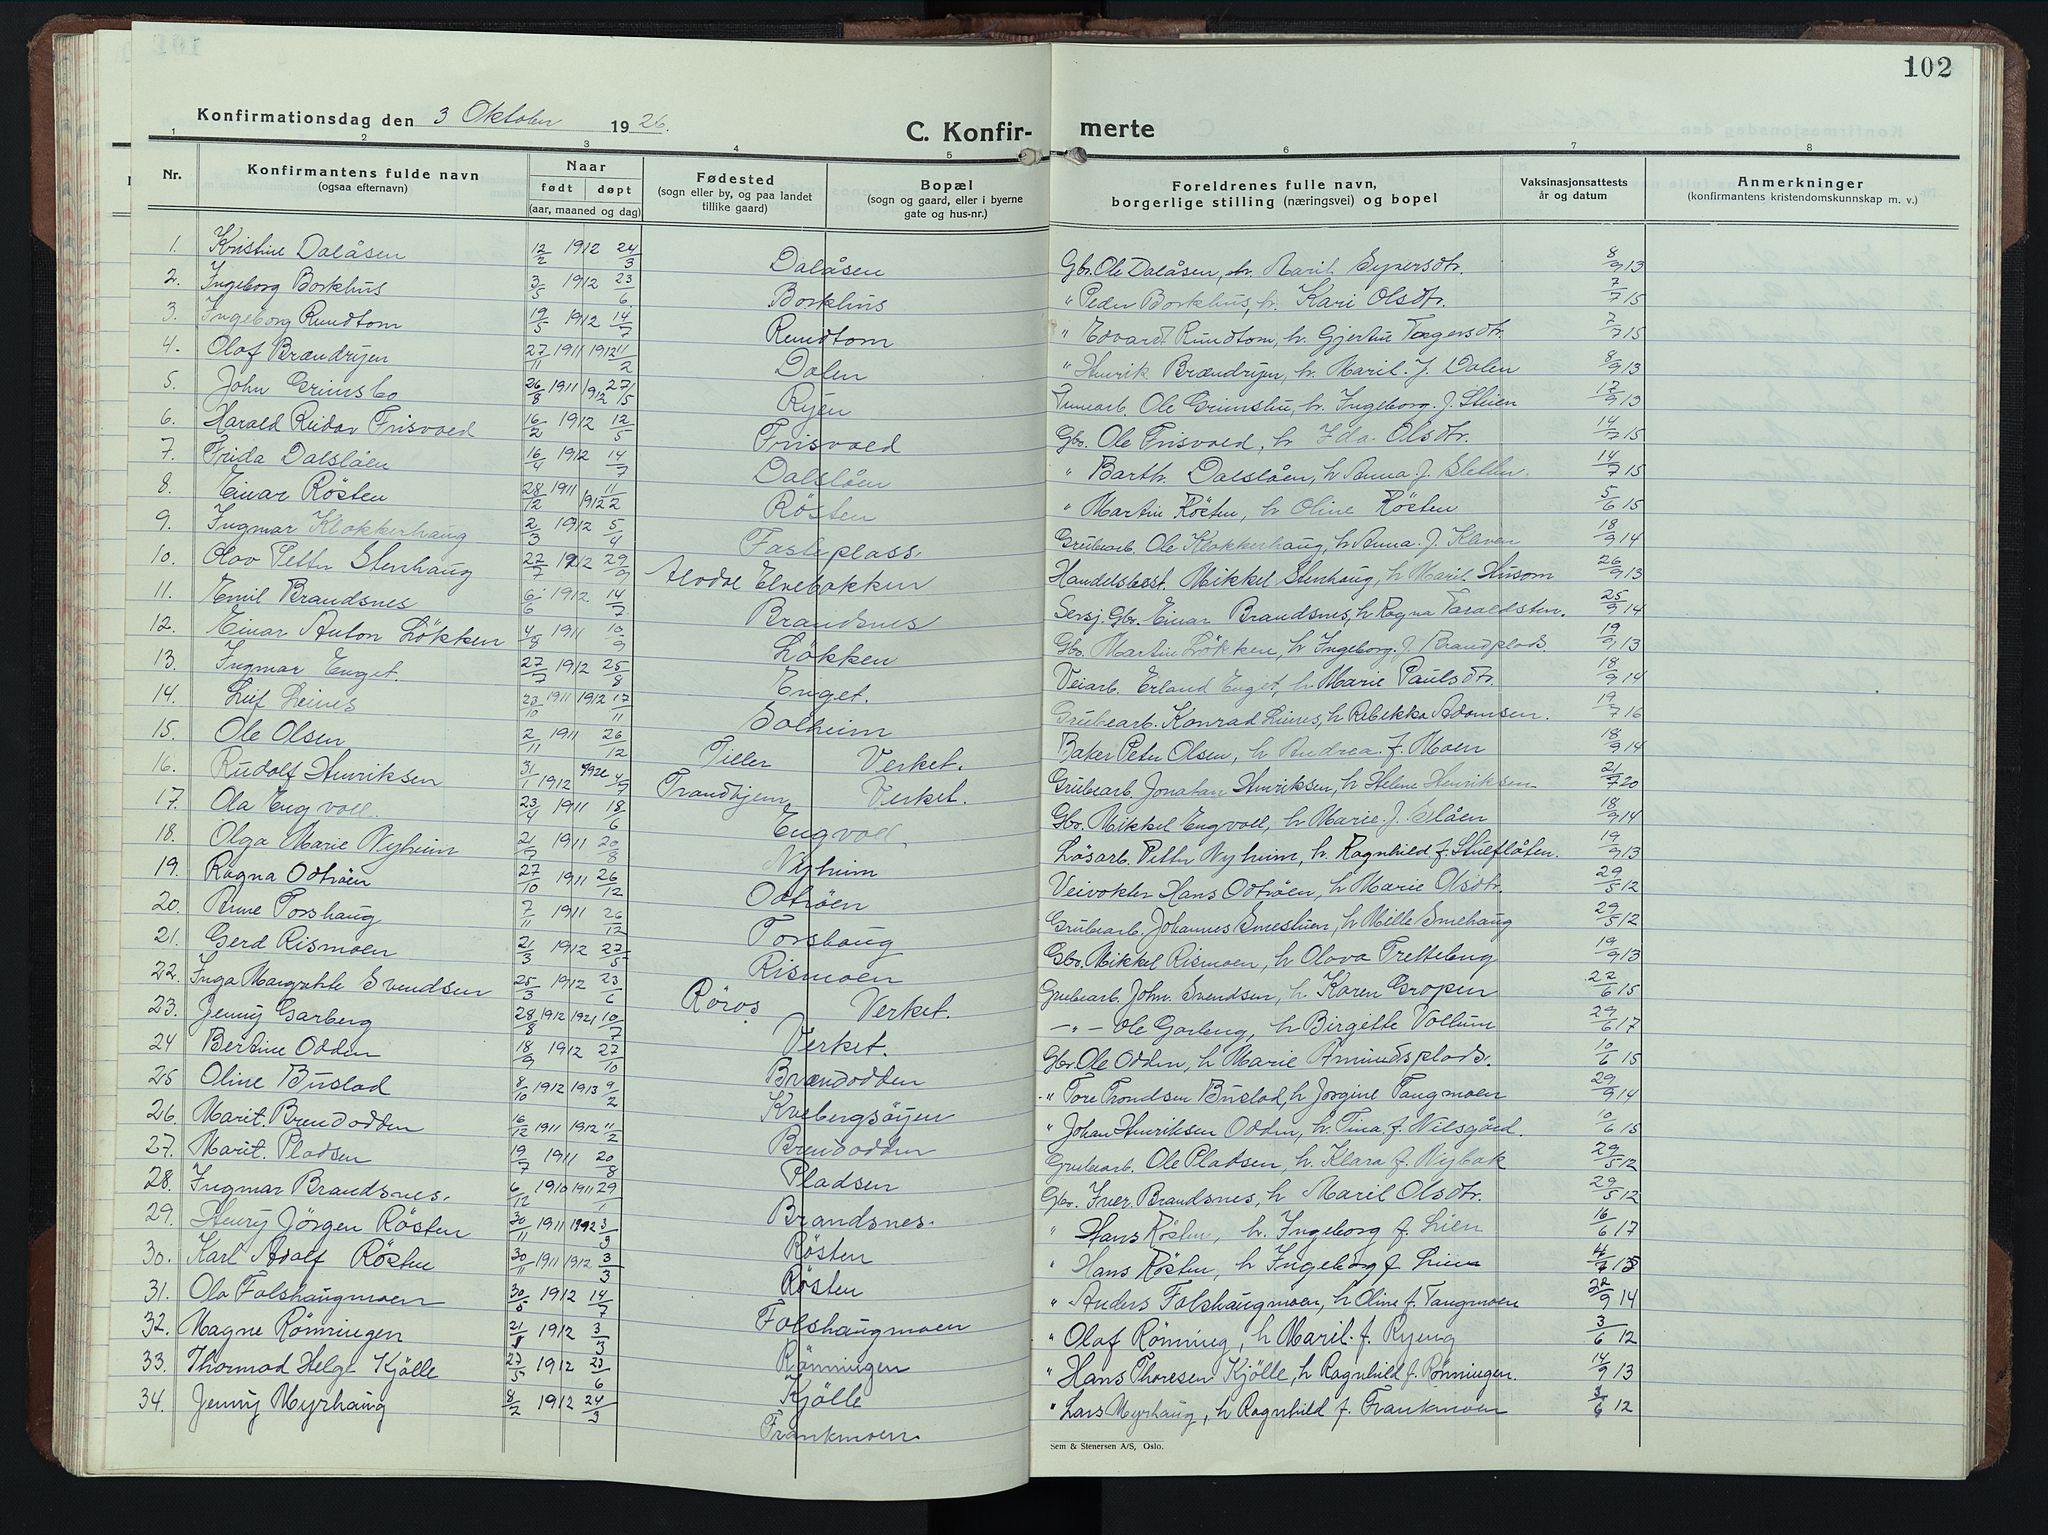 102
Konfirmationsdag den 3 Oktober 1926.
C. Konfir- merte
1 2 3 4 5 6 7 8
Nr.
Konfirmantens fulde navn
(ogsaa efternavn)
Naar
født døpt
(aar, maaned og dag)
Fødested
(sogn eller by, og paa landet
tillike gaard)
Bopæl
(sogn og gaard, eller i byerne
gate og hus-nr.)
Foreldrenes fulle navn,
borgerlige stilling (næringsvei) og bopel
Vaksinasjonsattests
år og datum
Anmerkninger
(konfirmantens kristendomskunnskap m. v.)
1. Kristine Dalåsen 12/2 1912 24/3 Dalåsen Gbr. Ole Dalåsen, Marit 8/9 13
2. Ingeborg Borkhus 3/5 1912 23/6 Borkhus " Peder Borkhus, h. Kari Olsdtr. 7/7 15
3. Ingeborg Rundtom 19/5 1912 14/7 Rundtom " Edvard Rundtom, h. Gjertine Torgersdtr. 7/7 15
4. Olaf Brændryen 27/11 1911 1912 11/2 Dalen " Henrik Brændryen, h. Marit J. Dalen 8/9 13
5. John Grimsbo 26/8 1911 1912 27/5 Ryen Ole Grimsbu, h. Ingeborg J. Stuen 17/9 13
6. Harald Reidar Frisvold 16/2 1912 12/5 Frisvold Gbr. Ole Frisvold, h Ida Olsdtr. 14/7 15
7. Frida Dalsløen 16/4 1912 14/7 Dalsløen " Barth. Dalsløen, h Anna J. Sletten 14/7 15
8. Einar Røsten 28/12 1911 1912 11/2 Røsten " Martin Røsten, h Oline Røsten 5/6 15
9. Ingmar Klokkerhaug 2/3 1912 5/4 Fasteplass Grubearb. Ole Klokkerhaug, h Anna J. Kleven 18/9 14
10. Olav Petter Stenhaug 22/7 1912 29/9 Alvdal Elvebakken Handelsbest. Mikkel Stenhaug, h Marit Husom 26/9 13
11. Emil Brandsnes 6/6 1912 14/7 Brandsnes Sersj. Gbr. Einar Brandsnes, h Ragna Taraldsten. 25/9 14
12. Einar Anton Løkken 4/8 1911 10/9 Løkken Gbr. Martin Løkken, h Ingeborg J. Brandplads. 19/9 13
13. Ingmar Enget. 27/7 1912 25/8 Enget. Veiarb. Erland Enget, h Marie Paulsdtr. 18/9 14
14. Leif Leines 23/10 1911 1912 17/11 Solheim Grubearb. Konrad Leines, h Rebekka Adamsen. 19/7 16
15. Ole Olsen 2/11 1911 26/12 Tiller Verket. Baker Peter Olsen, h Andrea f. Moen 18/9 14
16. Rudolf Henriksen 31/1 1912 4/7 Trondhjem Verket. Grubearb. Jonatan Henriksen, h Helene Henriksen 21/7 20
17. Ola Engvoll. 23/4 1911 18/6 Engvoll Gbr. Mikkel Engvoll, h Marie J. Slåen 18/9 14
18. Olga Marie Nyheim 21/7 1911 20/8 Nyheim Løsarb. Petter Nyheim, h. Ragnhild f. Stufløten. 19/9 13
19. Ragna Odtrøen 27/10 1911 26/12 Odtrøen Veivokter Hans Odtrøen, h Marie Olsdtr. 29/5 12
20. Anne Torshaug 7/11 1911 26/12 Torshaug Grubearb. Johannes Smestuen, h Mille Smehaug 29/5 12
21. Gerd Rismoen 21/3 1912 27/5 Rismoen Gbr. Mikkel Rismoen, h Olava Tretteteig 19/9 13
22. Inga Margrethe Svendsen 25/3 1912 23/6 Røros Verket. Grubearb. John Svendsen, h. Karen Gropen 22/6 15
23. Jenny Garberg 28/8 1912 1921 10/7 Verket. -"- Ole Garberg, h Birgitte Vollum 29/6 17
24 Bertine Odden 18/9 1912 27/10 Brændodden Gbr. Ole Odden, h Marie Amundsplads. 10/6 15
25 Oline Buslad 8/10 1912 1913 9/2 Kvebergsøyen " Tore Trondsen Buslad, h Jørgine Tangmoen 29/9 14
26. Marit Brendodden 16/12 1911 1912 11/2 Brendodden " Johan Henriksen Odden, h. Tina f. Nilsgård. 10/6 15
27. Marit Pladsen 19/7 1911 20/8 Pladsen Grubearb. Ole Pladsen, h. Klara f. Nybak 29/5 12
28. Ingmar Brandsnes. 6/12 1910 1911 29/1 Brandsnes. Gbr. Iver Brandsnes, h Marit Olsdtr. 29/5 12
29. Henry Jørgen Røsten 30/11 1911 1912 3/3 Røsten " Hans Røsten, h. Ingeborg f. Lien 16/6 17
30. Karl Adolf Røsten 30/11 1911 1912 3/3 Røsten " Hans Røsten, h Ingeborg f. Lien 4/6 13
31. Ola Folshaugmoen 30/5 1912 14/7 Folshaugmoen " Anders Folshaugmoen, h Oline f. Tangmoen 22/9 14
32. Magne Rønningen 21/1 1912 3/3 Rønningen " Olaf Rønning, h Marit f. Ryeng 3/6 12
33. Thormod Helge Kjølle 27/5 1912 23/6 Kjølle " Hans Thoresen Kjølle, h Ragnhild f. Rønningen. 14/9 13
34. Jenny Myrhaug 8/2 1912 24/3 Trankmoen. " Lars Myrhaug, h Ragnhild f. Frankmoen 3/6 12
Sem & Stenersen A/S, Oslo.